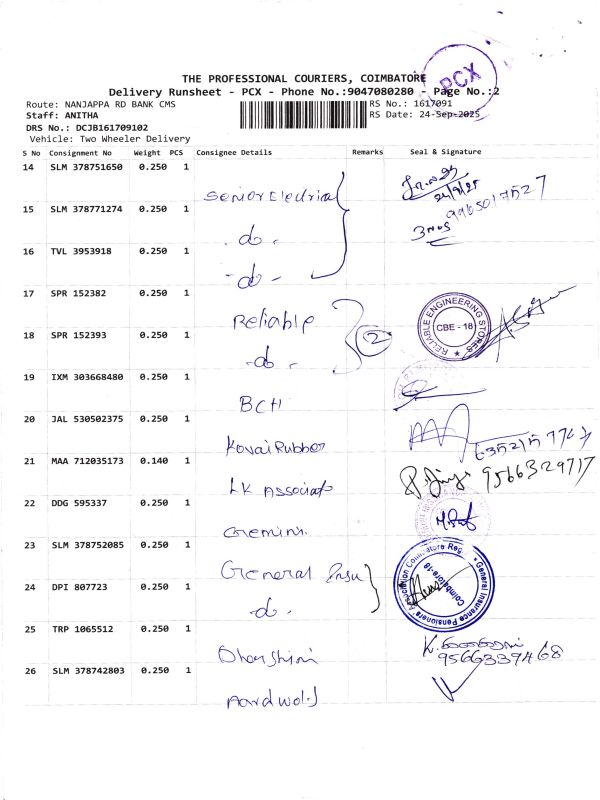 PCX
THE PROFESSIONAL COURIERS, COIMBATORE
Delivery Runsheet - PCX - Phone No.:9047080280 - Page No.:2
Route: NANJAPPA RD BANK CMS RS No.: 1617091
Staff: ANITHA RS Date: 24-Sep-2025
DRS No.: DCJB161709102
Vehicle: Two Wheeler Delivery
S No Consignment No Weight PCS Consignee Details Remarks Seal & Signature
14 SLM 378751650 0.250 1 Senior Electrical
24/9/25
15 SLM 378771274 0.250 1 -do-
3 Nos 9965017527
16 TVL 3953918 0.250 1 -do-
17 SPR 152382 0.250 1 Reliable
RELIABLE ENGINEERING STORES CBE - 18
18 SPR 152393 0.250 1 -do- 2
19 IXM 303668480 0.250 1 BCH
20 JAL 530502375 0.250 1 Kovai Rubber
21 MAA 712035173 0.140 1 LK Associats
9566329717
22 DDG 595337 0.250 1 Gemini
23 SLM 378752085 0.250 1 General Insu
General Insurance Pensioners' Association Coimbatore Reg. Coimbatore-18
24 DPI 807723 0.250 1 -do-
25 TRP 1065512 0.250 1 Dharshini
9566339468
26 SLM 378742803 0.250 1